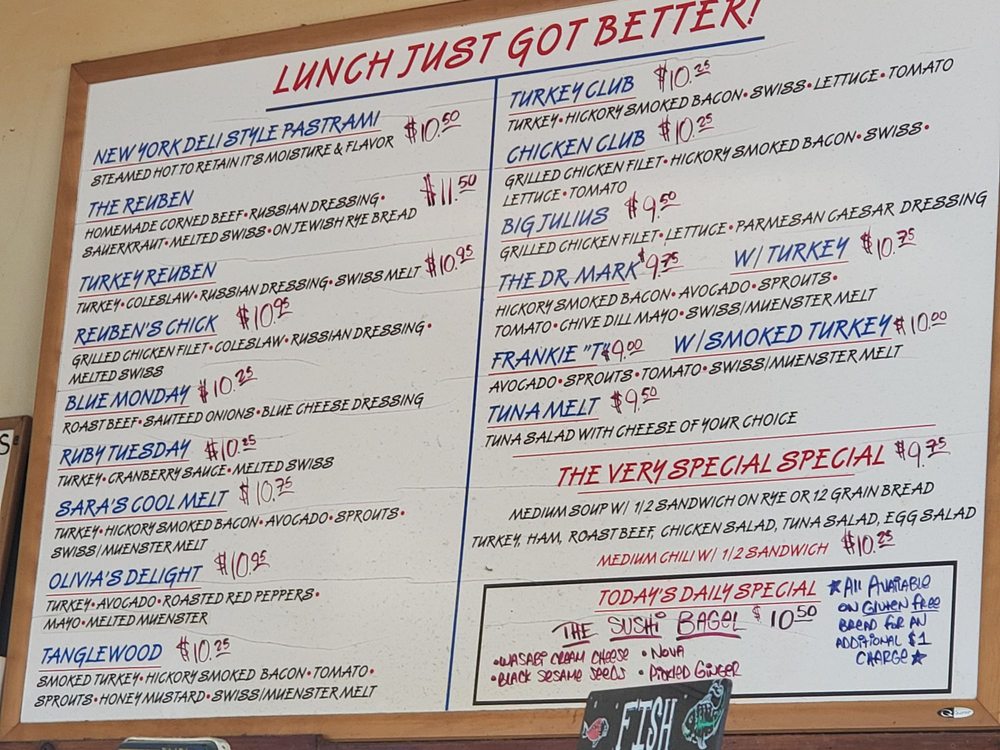 LUNCH JUST GOT BETTER!
NEW YORK DELI STYLE PASTRAMI $10.50
STEAMED HOT TO RETAIN IT'S MOISTURE & FLAVOR
THE REUBEN $11.50
HOMEMADE CORNED BEEF•RUSSIAN DRESSING•
SAUERKRAUT•MELTED SWISS•ON JEWISH RYE BREAD
TURKEY REUBEN $10.95
TURKEY•COLESLAW•RUSSIAN DRESSING•SWISS MELT
REUBEN'S CHICK $10.95
GRILLED CHICKEN FILET•COLESLAW•RUSSIAN DRESSING•
MELTED SWISS
BLUE MONDAY $10.25
ROAST BEEF•SAUTEED ONIONS•BLUE CHEESE DRESSING
RUBY TUESDAY $10.25
TURKEY•CRANBERRY SAUCE•MELTED SWISS
SARA'S COOL MELT $10.75
TURKEY•HICKORY SMOKED BACON•AVOCADO•SPROUTS•
SWISS/MUENSTER MELT
OLIVIA'S DELIGHT $10.95
TURKEY•AVOCADO•ROASTED RED PEPPERS•
MAYO•MELTED MUENSTER
TANGLEWOOD $10.25
SMOKED TURKEY•HICKORY SMOKED BACON•TOMATO•
SPROUTS•HONEY MUSTARD•SWISS/MUENSTER MELT
TURKEY CLUB $10.25
TURKEY•HICKORY SMOKED BACON•SWISS•LETTUCE•TOMATO
CHICKEN CLUB $10.25
GRILLED CHICKEN FILET•HICKORY SMOKED BACON•SWISS•
LETTUCE•TOMATO
BIG JULIUS $9.50
GRILLED CHICKEN FILET•LETTUCE•PARMESAN CAESAR DRESSING
THE DR. MARK $9.75 W/ TURKEY $10.75
HICKORY SMOKED BACON•AVOCADO•SPROUTS•
TOMATO•CHIVE DILL MAYO•SWISS/MUENSTER MELT
FRANKIE "T" $9.00 W/SMOKED TURKEY $10.00
AVOCADO•SPROUTS•TOMATO•SWISS/MUENSTER MELT
TUNA MELT $9.50
TUNA SALAD WITH CHEESE OF YOUR CHOICE
THE VERY SPECIAL SPECIAL $9.75
MEDIUM SOUP W/ 1/2 SANDWICH ON RYE OR 12 GRAIN BREAD
TURKEY, HAM, ROAST BEEF, CHICKEN SALAD, TUNA SALAD, EGG SALAD
MEDIUM CHILI W/ 1/2 SANDWICH $10.25
TODAY'S DAILY SPECIAL
THE SUSHI BAGEL $10.50
•WASABI CREAM CHEESE •NOVA
•BLACK SESAME SEEDS •PICKLED GINGER
★All AVAILABLE
ON GLUTEN FREE
BREAD FOR AN
ADDITIONAL $1
CHARGE★
FISH